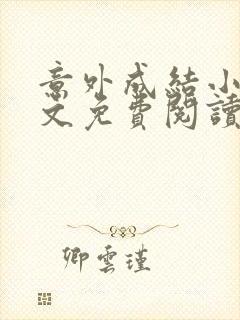 意外成結小
文免費閱讀
卿雲瑾